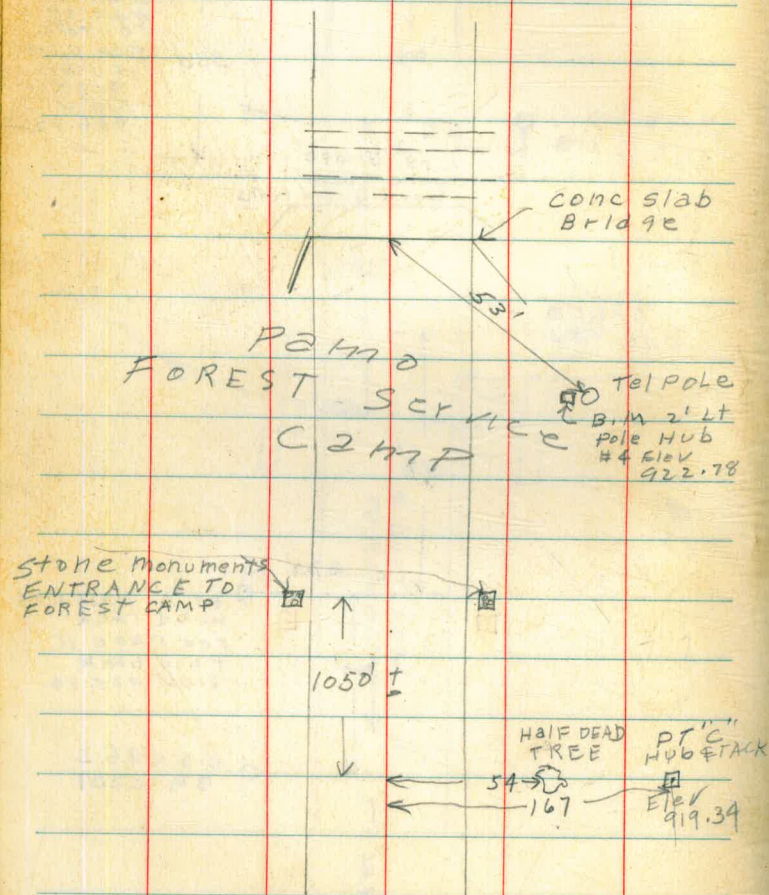 Conc Slab
Bridge
53'
Pamo
FOREST Service
Camp
Tel Pole
B.M 2' Lt
Pole Hub
#4 Elev
922.78
Stone monuments
ENTRANCE TO
FOREST CAMP
1050' ±
HALF DEAD
TREE
PT "C"
HUB & TACK
54
167
Elev
919.34